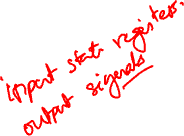 input state register.
output signals